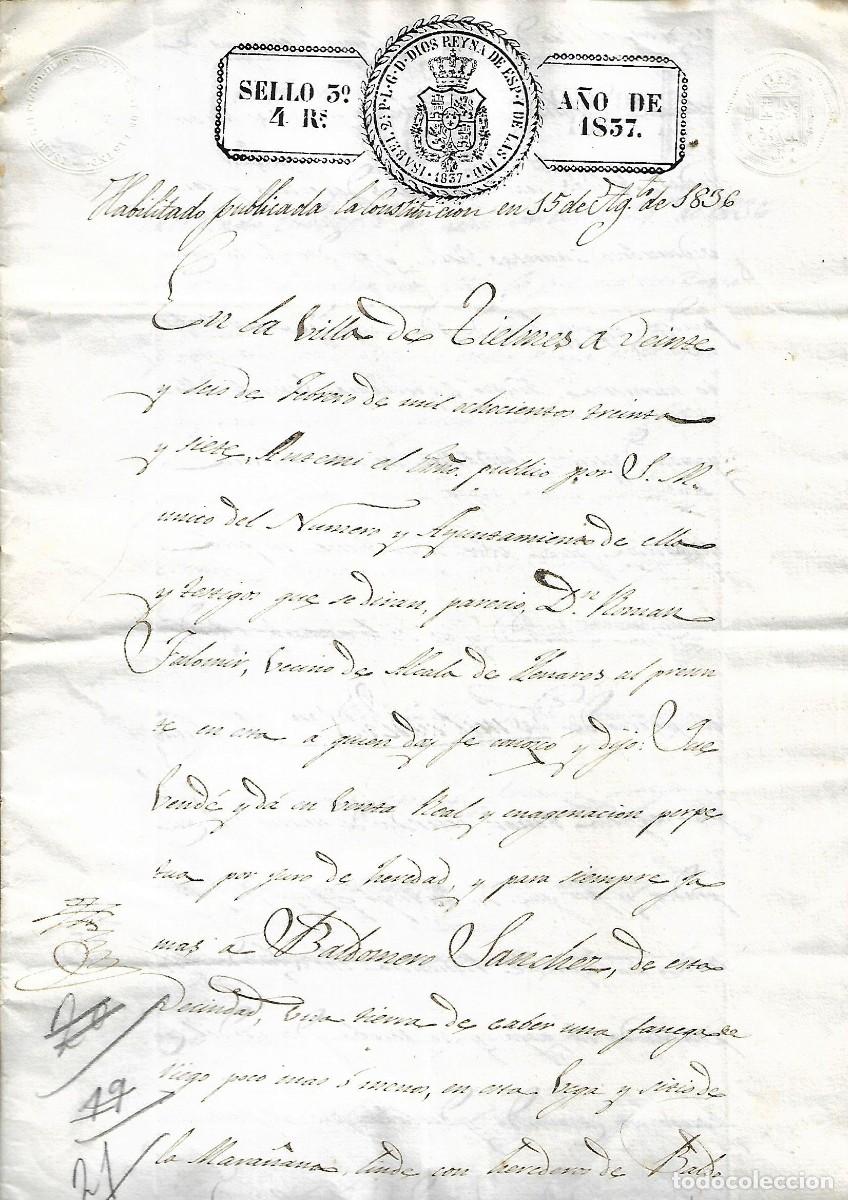 SELLO 3º
4 Rs.
ISABEL 2ª P. L. G. D. DIOS REYNA DE ESP. Y DE LAS IND.
1837
AÑO DE
1837.
Habilitado publicada la Constitucion en 15 de Agto. de 1836
En la Villa de Tielmes a Veinte
y seis de Febrero de mil ochocientos treinta
y siete, Antemi el Esño. publico por S. M.
unico del Numero y Ayuntamiento de ella
y testigos que se diran, parecio, Dn. Roman
Falomir, vecino de Alcala de Henares al presen
te en esta á quien doy fe conozco y dijo: Que
Vende y dá en Venta Real y enagenacion perpe
tua por juro de heredad, y para siempre ja
mas á Baldomero Sanchez, de esta
Vecindad, tierra de caber una fanega de
riego poco mas ó menos, en esta Vega y sitio de
la Marañana, linde con herederos de Baldo
19
21
todocoleccion